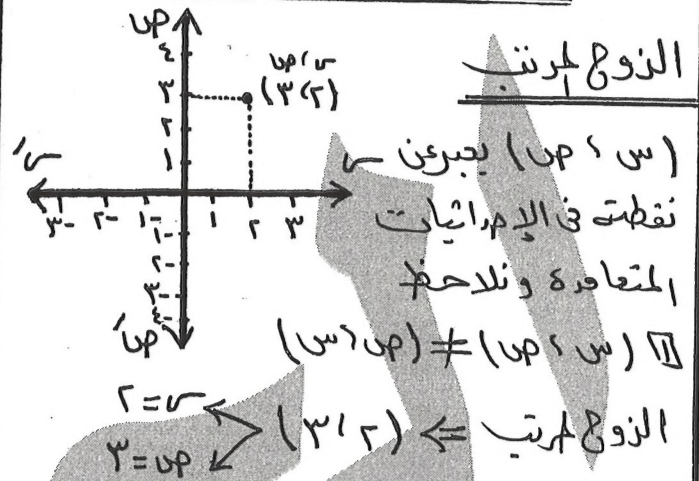 الزوج المرتب
(س ، ص) يعبر عن
نقطة فى الإحداثيات
المتعامدة ونلاحظ
١ (س ، ص) ≠ (ص ، س)
الزوج المرتب ⇐ (٢ ، ٣)
س = ٢
ص = ٣
ص
٤
٣
٢
١
س، ص
(٢ ، ٣)
سَ
س
-٣ -٢ -١ ١ ٢ ٣
-١
-٢
-٣
-٤
صَ